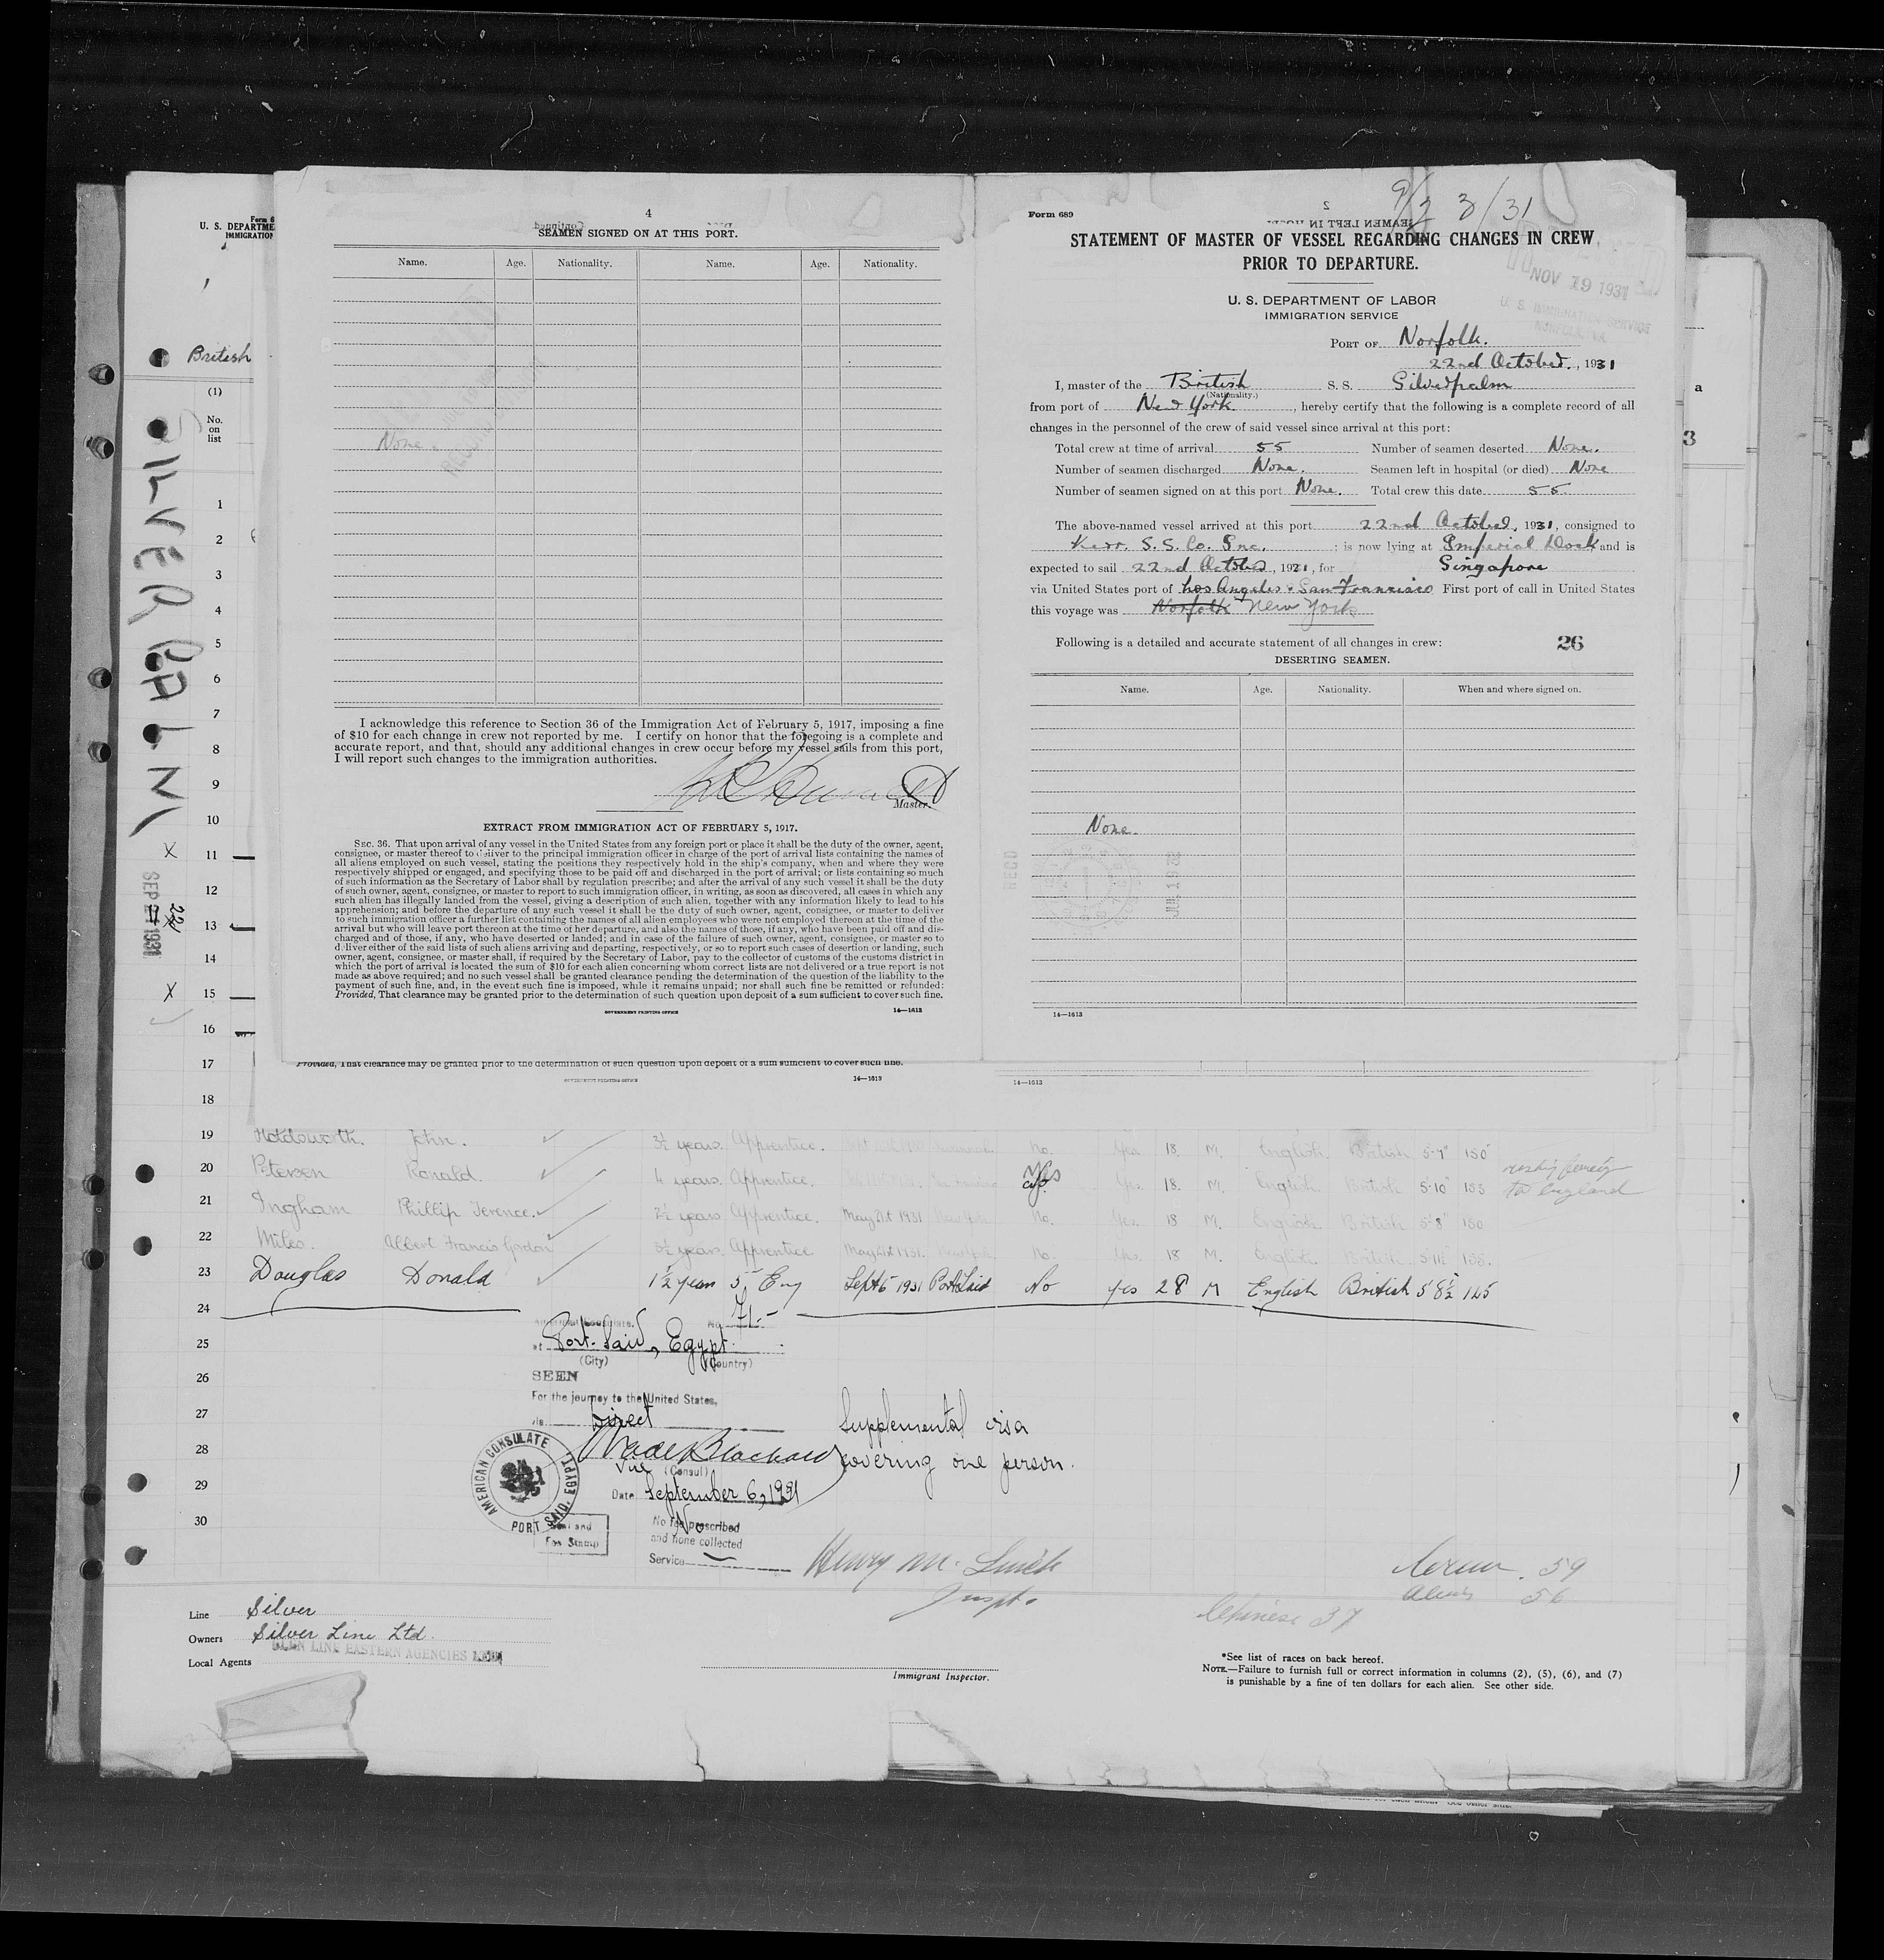 4
SEAMEN SIGNED ON AT THIS PORT.
Name. Age. Nationality. Name. Age. Nationality.
None.
I acknowledge this reference to Section 36 of the Immigration Act of February 5, 1917, imposing a fine
of $10 for each change in crew not reported by me. I certify on honor that the foregoing is a complete and
accurate report, and that, should any additional changes in crew occur before my vessel sails from this port,
I will report such changes to the immigration authorities.
Master.
EXTRACT FROM IMMIGRATION ACT OF FEBRUARY 5, 1917.
SEC. 36. That upon arrival of any vessel in the United States from any foreign port or place it shall be the duty of the owner, agent,
consignee, or master thereof to deliver to the principal immigration officer in charge of the port of arrival lists containing the names of
all aliens employed on such vessel, stating the positions they respectively hold in the ship's company, when and where they were
respectively shipped or engaged, and specifying those to be paid off and discharged in the port of arrival; or lists containing so much
of such information as the Secretary of Labor shall by regulation prescribe; and after the arrival of any such vessel it shall be the duty
of such owner, agent, consignee, or master to report to such immigration officer, in writing, as soon as discovered, all cases in which any
such alien has illegally landed from the vessel, giving a description of such alien, together with any information likely to lead to his
apprehension; and before the departure of any such vessel it shall be the duty of such owner, agent, consignee, or master to deliver
to such immigration officer a further list containing the names of all alien employees who were not employed thereon at the time of the
arrival but who will leave port thereon at the time of her departure, and also the names of those, if any, who have been paid off and dis-
charged and of those, if any, who have deserted or landed; and in case of the failure of such owner, agent, consignee, or master so to
deliver either of the said lists of such aliens arriving and departing, respectively, or so to report such cases of desertion or landing, such
owner, agent, consignee, or master shall, if required by the Secretary of Labor, pay to the collector of customs of the customs district in
which the port of arrival is located the sum of $10 for each alien concerning whom correct lists are not delivered or a true report is not
made as above required; and no such vessel shall be granted clearance pending the determination of the question of the liability to the
payment of such fine, and, in the event such fine is imposed, while it remains unpaid; nor shall such fine be remitted or refunded:
Provided, That clearance may be granted prior to the determination of such question upon deposit of a sum sufficient to cover such fine.
GOVERNMENT PRINTING OFFICE 14—1613
9/23/31
Form 689
STATEMENT OF MASTER OF VESSEL REGARDING CHANGES IN CREW
PRIOR TO DEPARTURE.
NOV 19 1931
U. S. IMMIGRATION SERVICE
NORFOLK, VA.
U. S. DEPARTMENT OF LABOR
IMMIGRATION SERVICE
PORT OF Norfolk.
22nd October, 1931
I, master of the British S. S. Silverpalm
(Nationality.)
from port of New York, hereby certify that the following is a complete record of all
changes in the personnel of the crew of said vessel since arrival at this port:
Total crew at time of arrival 55 Number of seamen deserted None.
Number of seamen discharged None. Seamen left in hospital (or died) None
Number of seamen signed on at this port None. Total crew this date 55.
The above-named vessel arrived at this port 22nd October, 1931, consigned to
Kerr. S.S. Co. Inc. ; is now lying at Imperial Dock and is
expected to sail 22nd October, 1931, for Singapore
via United States port of Los Angeles & San Francisco First port of call in United States
this voyage was Norfolk New York
Following is a detailed and accurate statement of all changes in crew: 26
DESERTING SEAMEN.
Name. Age. Nationality. When and where signed on.
None.
REC'D
JUL 16 32
14—1613
U. S. DEPARTME
IMMIGRATION
British
(1)
No.
on
list
SILVERPALM
SEP 1931
22
1
2
3
4
5
6
7
8
9
10
X 11
12
13
14
X 15
16
17
18
a
3
Provided, That clearance may be granted prior to the determination of such question upon deposit of a sum sufficient to cover such fine.
GOVERNMENT PRINTING OFFICE 14—1613 14—1613
19 Holdsworth. John. 3½ years. Apprentice. No. Yes 18. M. English. British 5-7" 150
20 Petersen Ronald. 4 years. Apprentice. Yes Yes. 18. M. English British 5-10" 155
to England
21 Ingham Phillip Terence. 2½ years Apprentice. May 21st 1931 New York No. Yes 18 M. English British 5-8" 150
22 Miles. Albert Francis Gordon 3½ years. Apprentice May 21st 1931. New York. No. Yes. 18 M. English. British.
23 Douglas Donald 1½ year 5 Eng Sept 6 1931 Port Said No yes 28 M English British 5'8½ 145
24
25
26
27
28
29
30
No. 71.-
at Port-Said, Egypt.
(City) (Country)
SEEN
For the journey to the United States,
via Direct
Vice (Consul)
Date September 6, 1931
Supplemental visa
covering one person.
AMERICAN CONSULATE
PORT SAID, EGYPT
Seal and
Fee Stamp
No fee prescribed
and none collected
Service
Inspt.
59
56
Chinese 37
Line Silver
Owners Silver Line Ltd.
GLEN LINE EASTERN AGENCIES LTD.
Local Agents
Immigrant Inspector.
*See list of races on back hereof.
NOTE.—Failure to furnish full or correct information in columns (2), (5), (6), and (7)
is punishable by a fine of ten dollars for each alien. See other side.